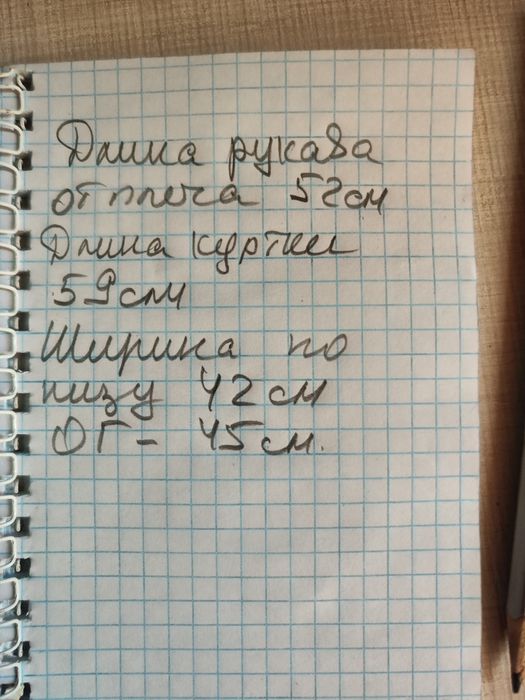 Длина рукава
от плеча 52см
Длина куртки
59см
Ширина по
низу 42см
ОГ - 45см.